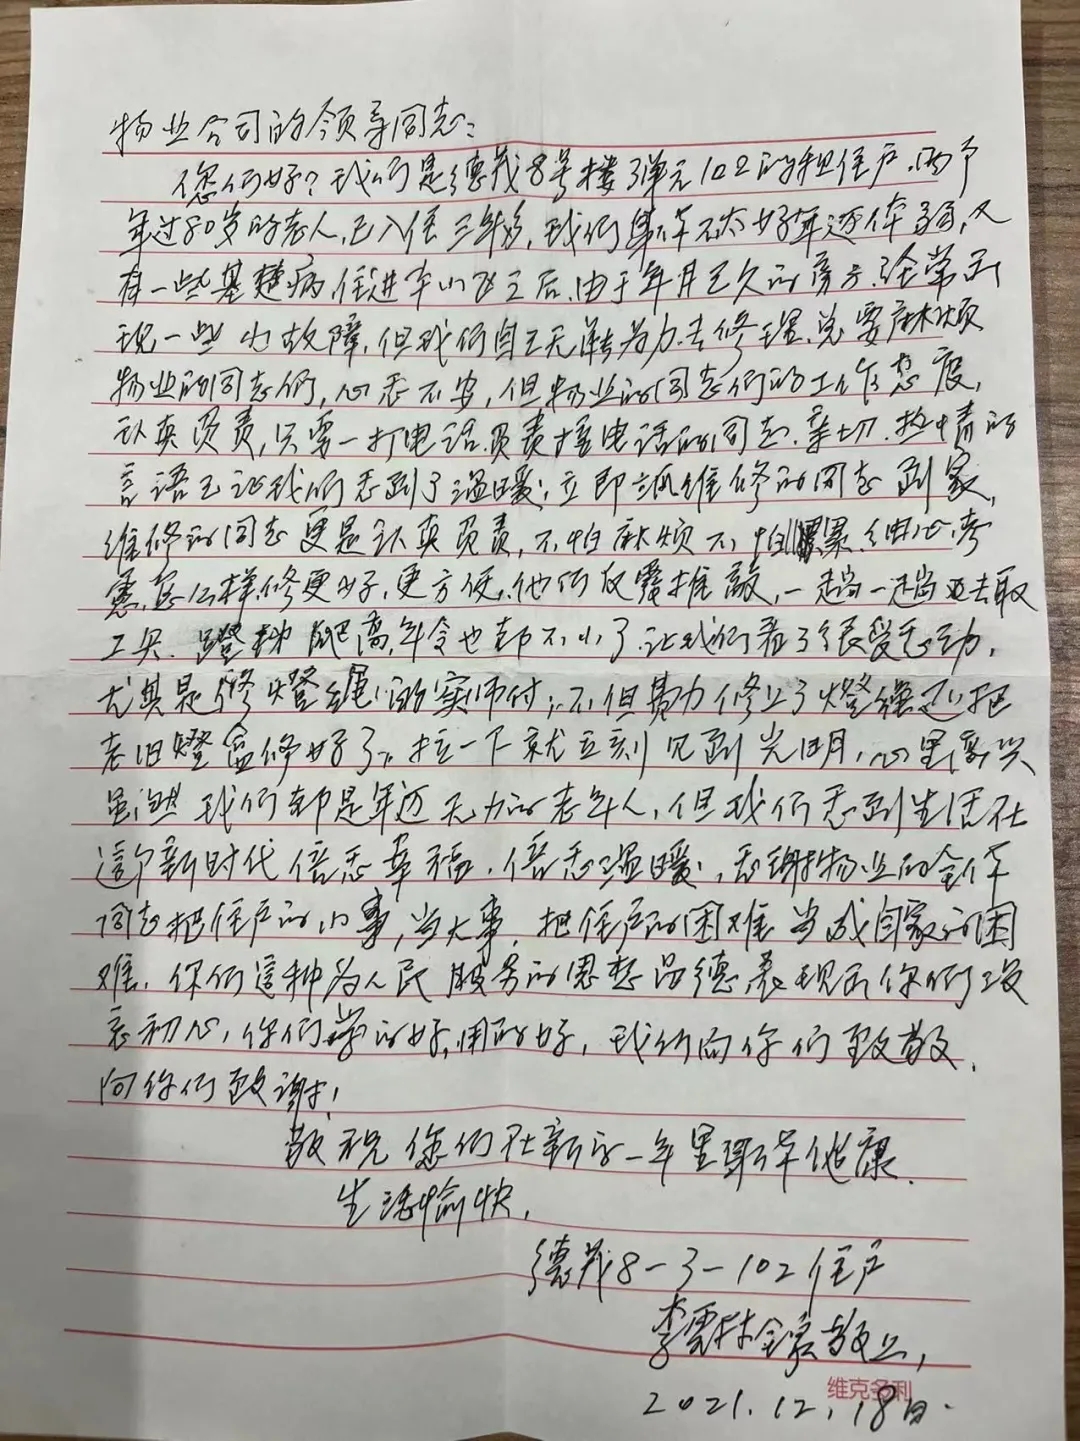 物业公司的领导同志：
您们好？我们是德茂8号楼3单元102的租住户，两个
年过80岁的老人，已入住三年多，我们身体不太好年迈体弱，又
有一些基础病，住进本小区之后，由于年月已久的房子，经常出
现一些小故障，但我们自己无能为力去修理，总要麻烦
物业的同志们，心悉不安，但物业的同志们的工作态度，
认真负责，只要一打电话，负责接电话的同志，亲切，热情的
言语已让我们感到了温暖，立即派维修的同志到家，
维修的同志更是认真负责，不怕麻烦不怕累，细心考
虑，怎么样修更好，更方便，他们反覆推敲，一趟一趟去取
工具，蹬梯爬高，年令也都不小了，让我们看了很受感动，
尤其是修燈繩的师付，不但努力修上了燈繩还把
老旧燈盒修好了，拉一下就立刻见到光明，心里高兴
虽然我们都是年迈无力的老年人，但我们感到生活在
這个新时代倍感幸福，倍感温暖，感谢物业的全体
同志把住户的小事，当大事，把住户的困难当成自家的困
难，你们這种为人民服务的思想品德表现出你们没
忘初心，你们学的好，用的好，我们向你们致敬，
向你们致谢！
敬祝您们在新的一年里身体健康，
生活愉快，
德茂8-3-102住户
李雲林全家敬上，
维克多利
2021.12.18日.